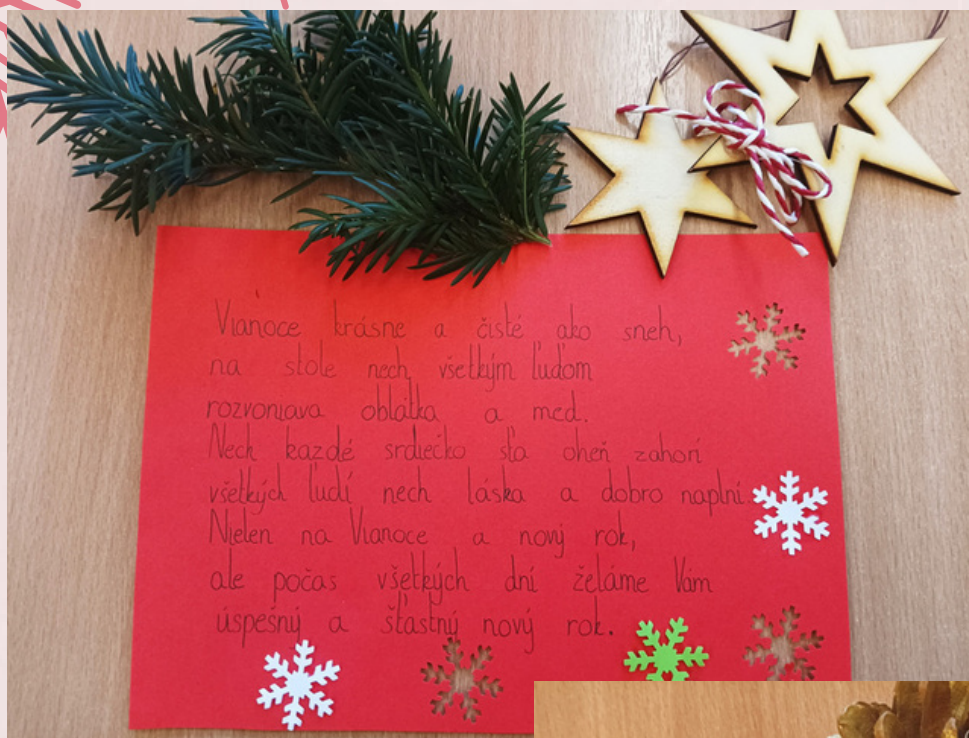 Vianoce krásne a čisté ako sneh,
na stole nech všetkým ľuďom
rozvoniava oblátka a med.
Nech kazdé srdiečko sťa oheň zahorí
všetkých ľudí nech láska a dobro naplní.
Nielen na Vianoce a nový rok,
ale počas všetkých dní želáme Vám
úspešný a šťastný nový rok.